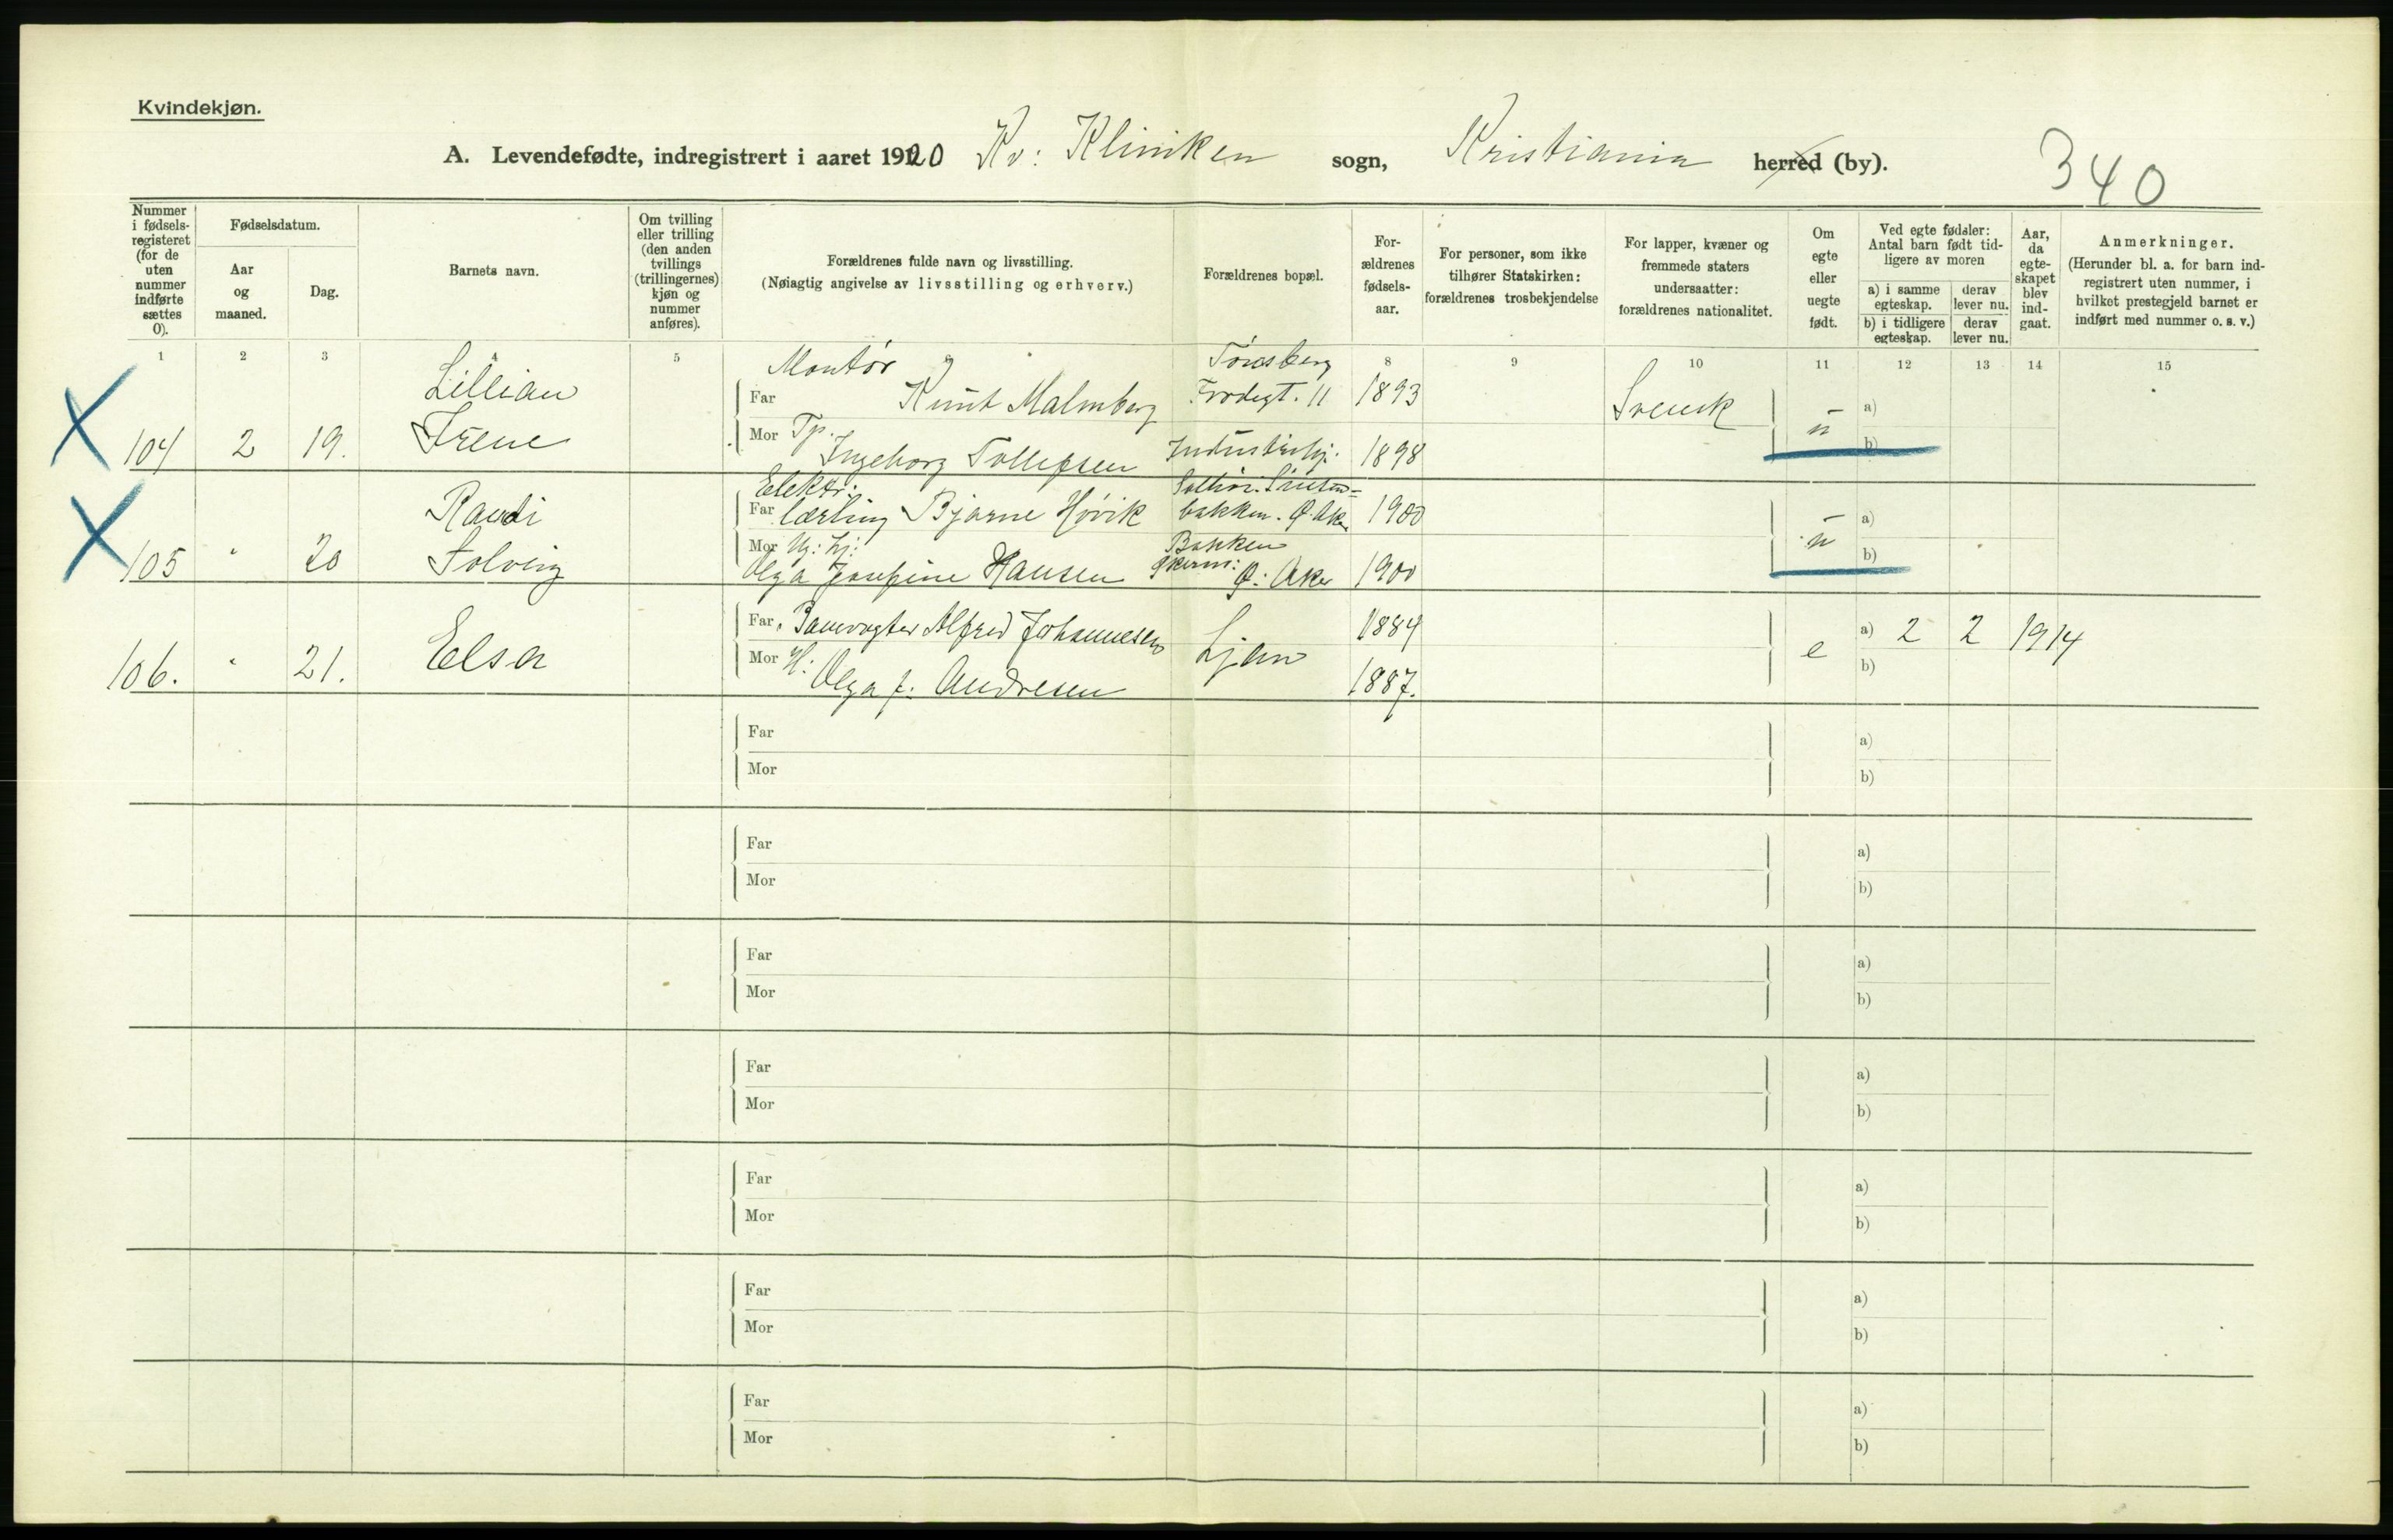 Kvindekjøn.
A. Levendefødte, indregistrert i aaret 1920 Kv: Kliniken sogn, Kristiania herred (by).
340
Nummer i fødsels-registeret (for de uten nummer indførte sættes 0).
Fødselsdatum.
Aar og maaned.
Dag.
Barnets navn.
Om tvilling eller trilling (den anden tvillings (trillingernes) kjøn og nummer anføres).
Forældrenes fulde navn og livsstilling.
(Nøiagtig angivelse av livsstilling og erhverv.)
Forældrenes bopæl.
For-ældrenes fødsels-aar.
For personer, som ikke tilhører Statskirken: forældrenes trosbekjendelse
For lapper, kvæner og fremmede staters undersaatter: forældrenes nationalitet.
Om egte eller uegte født.
Ved egte fødsler: Antal barn født tid-ligere av moren
a) i samme egteskap. derav lever nu.
b) i tidligere egteskap. derav lever nu.
Aar, da egte-skapet blev ind-gaat.
Anmerkninger.
(Herunder bl. a. for barn ind-registrert uten nummer, i hvilket prestegjeld barnet er indført med nummer o. s. v.)
1 2 3 4 5 6 8 9 10 11 12 13 14 15
Montør Tønsberg
Lillian Far Knut Malmberg Frodegt. 11 1893 Svensk a)
104 2 19. Irene Mor Tp. Ingeborg Tollefsen 1898 u b)
Elektr.
Randi Far lærling Bjarne Høvik bakken. Ø. Aker 1900 a)
105 " 20 Solveig Mor Olga Josefine Hansen Bakken Ø: Aker 1900 u b)
Far Banevogter Alfred Johannesen Ljan 1884 a) 2 2 1914
106. " 21. Elsa Mor H: Olga f. Andresen 1887. e b)
Far a)
Mor b)
Far a)
Mor b)
Far a)
Mor b)
Far a)
Mor b)
Far a)
Mor b)
Far a)
Mor b)
Far a)
Mor b)